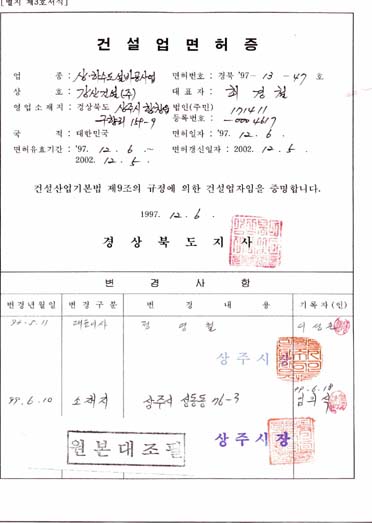 [별지 제3호서식]
건설업면허증
업 종 : 상·하수도설비공사업 면허번호 : 경북 '97- 13 - 47 호
상 호 : 강산건설(주) 대 표 자 : 최 경 철
영업소재지 : 경상북도 상주시 함창읍 법인(주민) 171411
구향리 159-9 등록번호 : -0004617
국 적 : 대한민국 면허일자 : '97. 12. 6.
면허유효기간 : '97. 12. 6. ~ 면허갱신일자 : 2002. 12. 5.
2002. 12. 5.
건설산업기본법 제9조의 규정에 의한 건설업자임을 증명합니다.
1997. 12. 6.
경상북도지사
변 경 사 항
변경년월일 변경구분 변 경 내 용 기록자(인)
대표이사 영 철
상주시장
99.6.10 소재지 상주시 성동동 76-3 99.6.18
원본대조필 상주시장